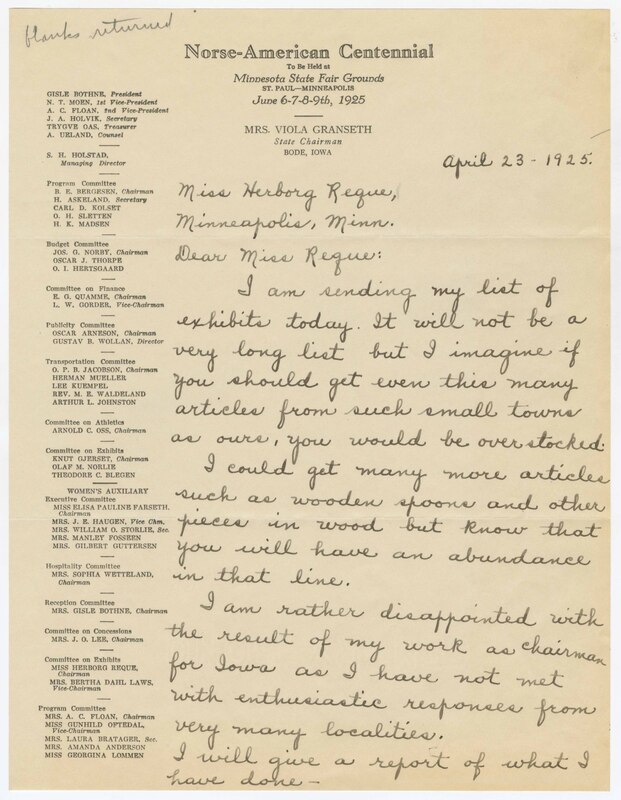 blanks returned
Norse-American Centennial
To Be Held at
Minnesota State Fair Grounds
ST. PAUL—MINNEAPOLIS
June 6-7-8-9th, 1925
MRS. VIOLA GRANSETH
State Chairman
BODE, IOWA
GISLE BOTHNE, President
N. T. MOEN, 1st Vice-President
A. C. FLOAN, 2nd Vice-President
J. A. HOLVIK, Secretary
TRYGVE OAS, Treasurer
A. UELAND, Counsel
S. H. HOLSTAD,
Managing Director
Program Committee
B. E. BERGESEN, Chairman
H. ASKELAND, Secretary
CARL D. KOLSET
O. H. SLETTEN
H. K. MADSEN
Budget Committee
JOS. G. NORBY, Chairman
OSCAR J. THORPE
O. I. HERTSGAARD
Committee on Finance
E. G. QUAMME, Chairman
L. W. GORDER, Vice-Chairman
Publicity Committee
OSCAR ARNESON, Chairman
GUSTAV B. WOLLAN, Director
Transportation Committee
O. P. B. JACOBSON, Chairman
HERMAN MUELLER
LEE KUEMPEL
REV. M. E. WALDELAND
ARTHUR L. JOHNSTON
Committee on Athletics
ARNOLD C. OSS, Chairman
Committee on Exhibits
KNUT GJERSET, Chairman
OLAF M. NORLIE
THEODORE C. BLEGEN
WOMEN'S AUXILIARY
Executive Committee
MISS ELISA PAULINE FARSETH,
Chairman
MRS. J. E. HAUGEN, Vice Chm.
MRS. WILLIAM O. STORLIE, Sec.
MRS. MANLEY FOSSEEN
MRS. GILBERT GUTTERSEN
Hospitality Committee
MRS. SOPHIA WETTELAND,
Chairman
Reception Committee
MRS. GISLE BOTHNE, Chairman
Committee on Concessions
MRS. J. O. LEE, Chairman
Committee on Exhibits
MISS HERBORG REQUE,
Chairman
MRS. BERTHA DAHL LAWS,
Vice-Chairman
Program Committee
MRS. A. C. FLOAN, Chairman
MISS GUNHILD OFTEDAL,
Vice-Chairman
MRS. LAURA BRATAGER, Sec.
MRS. AMANDA ANDERSON
MISS GEORGINA LOMMEN
April 23 - 1925.
Miss Herborg Reque,
Minneapolis, Minn.
Dear Miss Reque:
I am sending my list of
exhibits today. It will not be a
very long list but I imagine if
you should get even this many
articles from such small towns
as ours, you would be overstocked.
I could get many more articles
such as wooden spoons and other
pieces in wood but know that
you will have an abundance
in that line.
I am rather disappointed with
the result of my work as chairman
for Iowa as I have not met
with enthusiastic responses from
very many localities.
I will give a report of what I
have done—